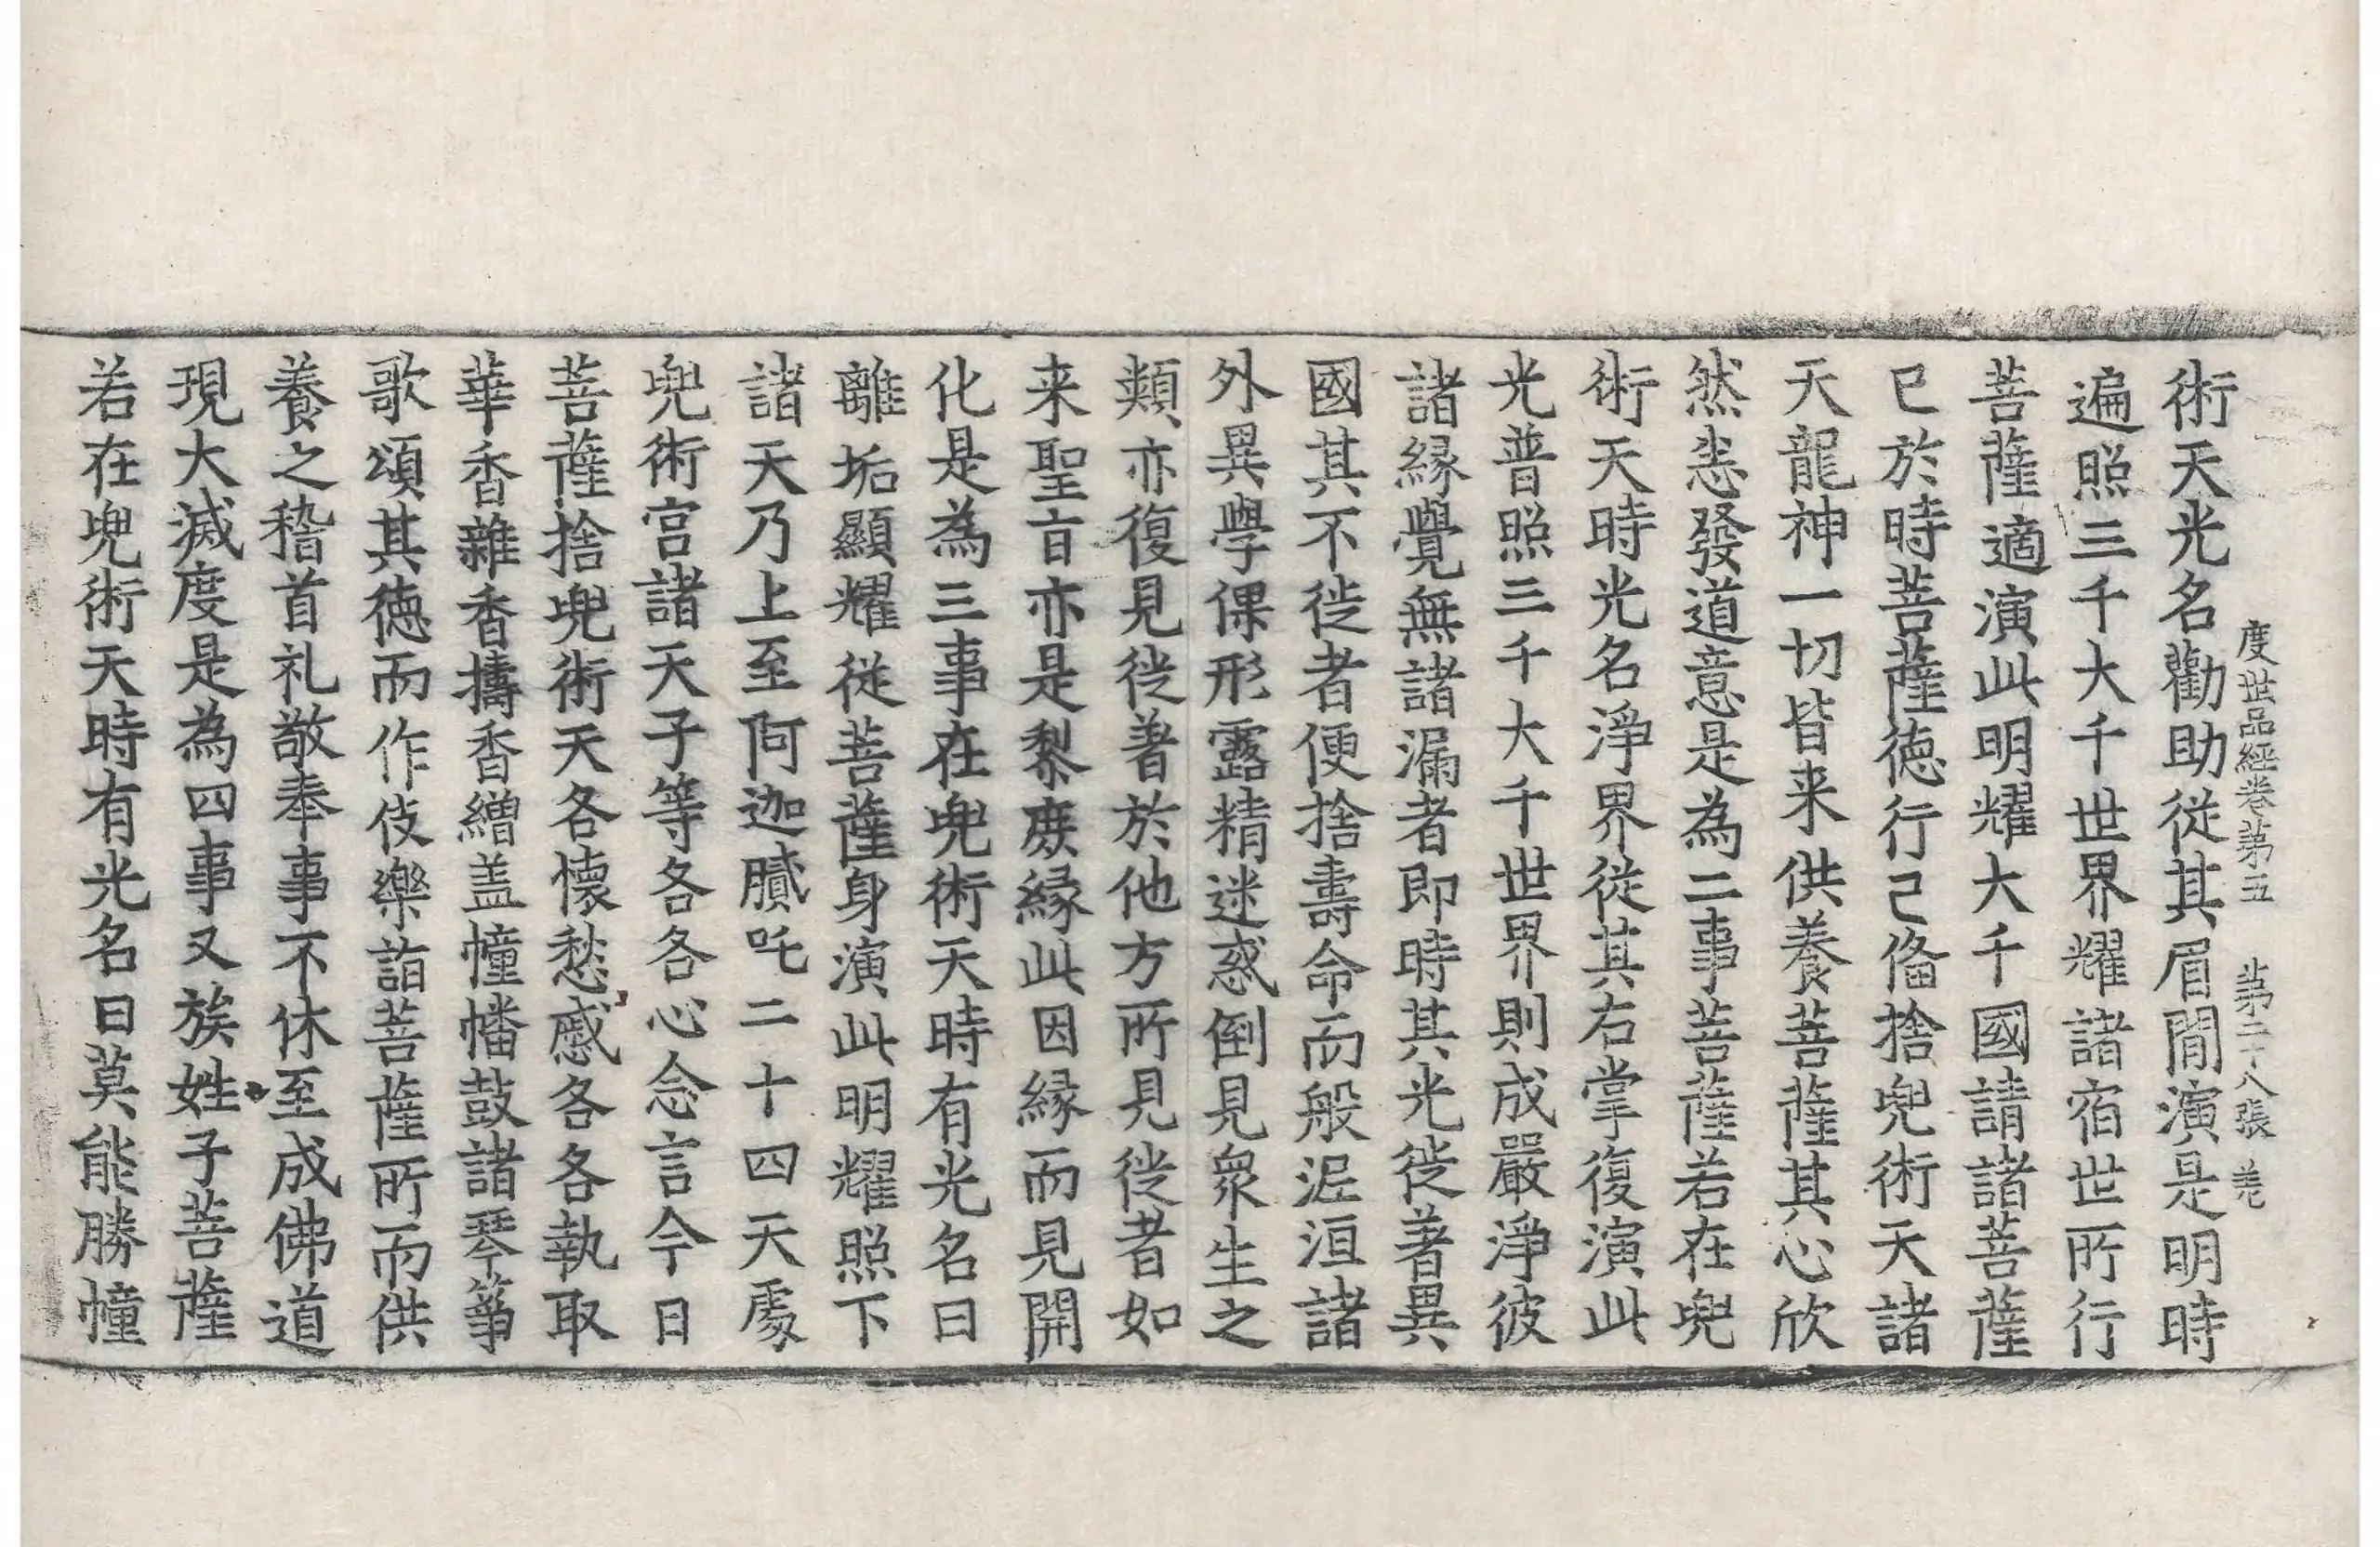 度世品經卷第五 第二十八張 羌
術天光名勸助從其眉間演是明時
遍照三千大千世界耀諸宿世所行
菩薩適演此明耀大千國請諸菩薩
已於時菩薩德行已俻捨兜術天諸
天龍神一切皆来供養菩薩其心欣
然恙發道意是為二事菩薩若在兜
術天時光名淨界從其右掌復演此
光普照三千大千世界則成嚴淨彼
諸縁覺無諸漏者即時其光徙著異
國其不徙者便捨壽命而般泥洹諸
外異學倮形露精迷惑倒見眾生之
類亦復見徙著於他方所見徙者如
来聖旨亦是黎庻縁此因縁而見開
化是為三事在兜術天時有光名曰
離垢顯耀從菩薩身演此明耀照下
諸天乃上至阿迦膩吒二十四天處
兜術宮諸天子等各各心念言今日
菩薩捨兜術天各懷愁慼各各執取
華香雜香擣香繒盖幢幡鼓諸琴箏
歌頌其徳而作伎樂詣菩薩所而供
養之稽首礼敬奉事不休至成佛道
現大滅度是為四事又族姓子菩薩
若在兜術天時有光名曰莫能勝幢